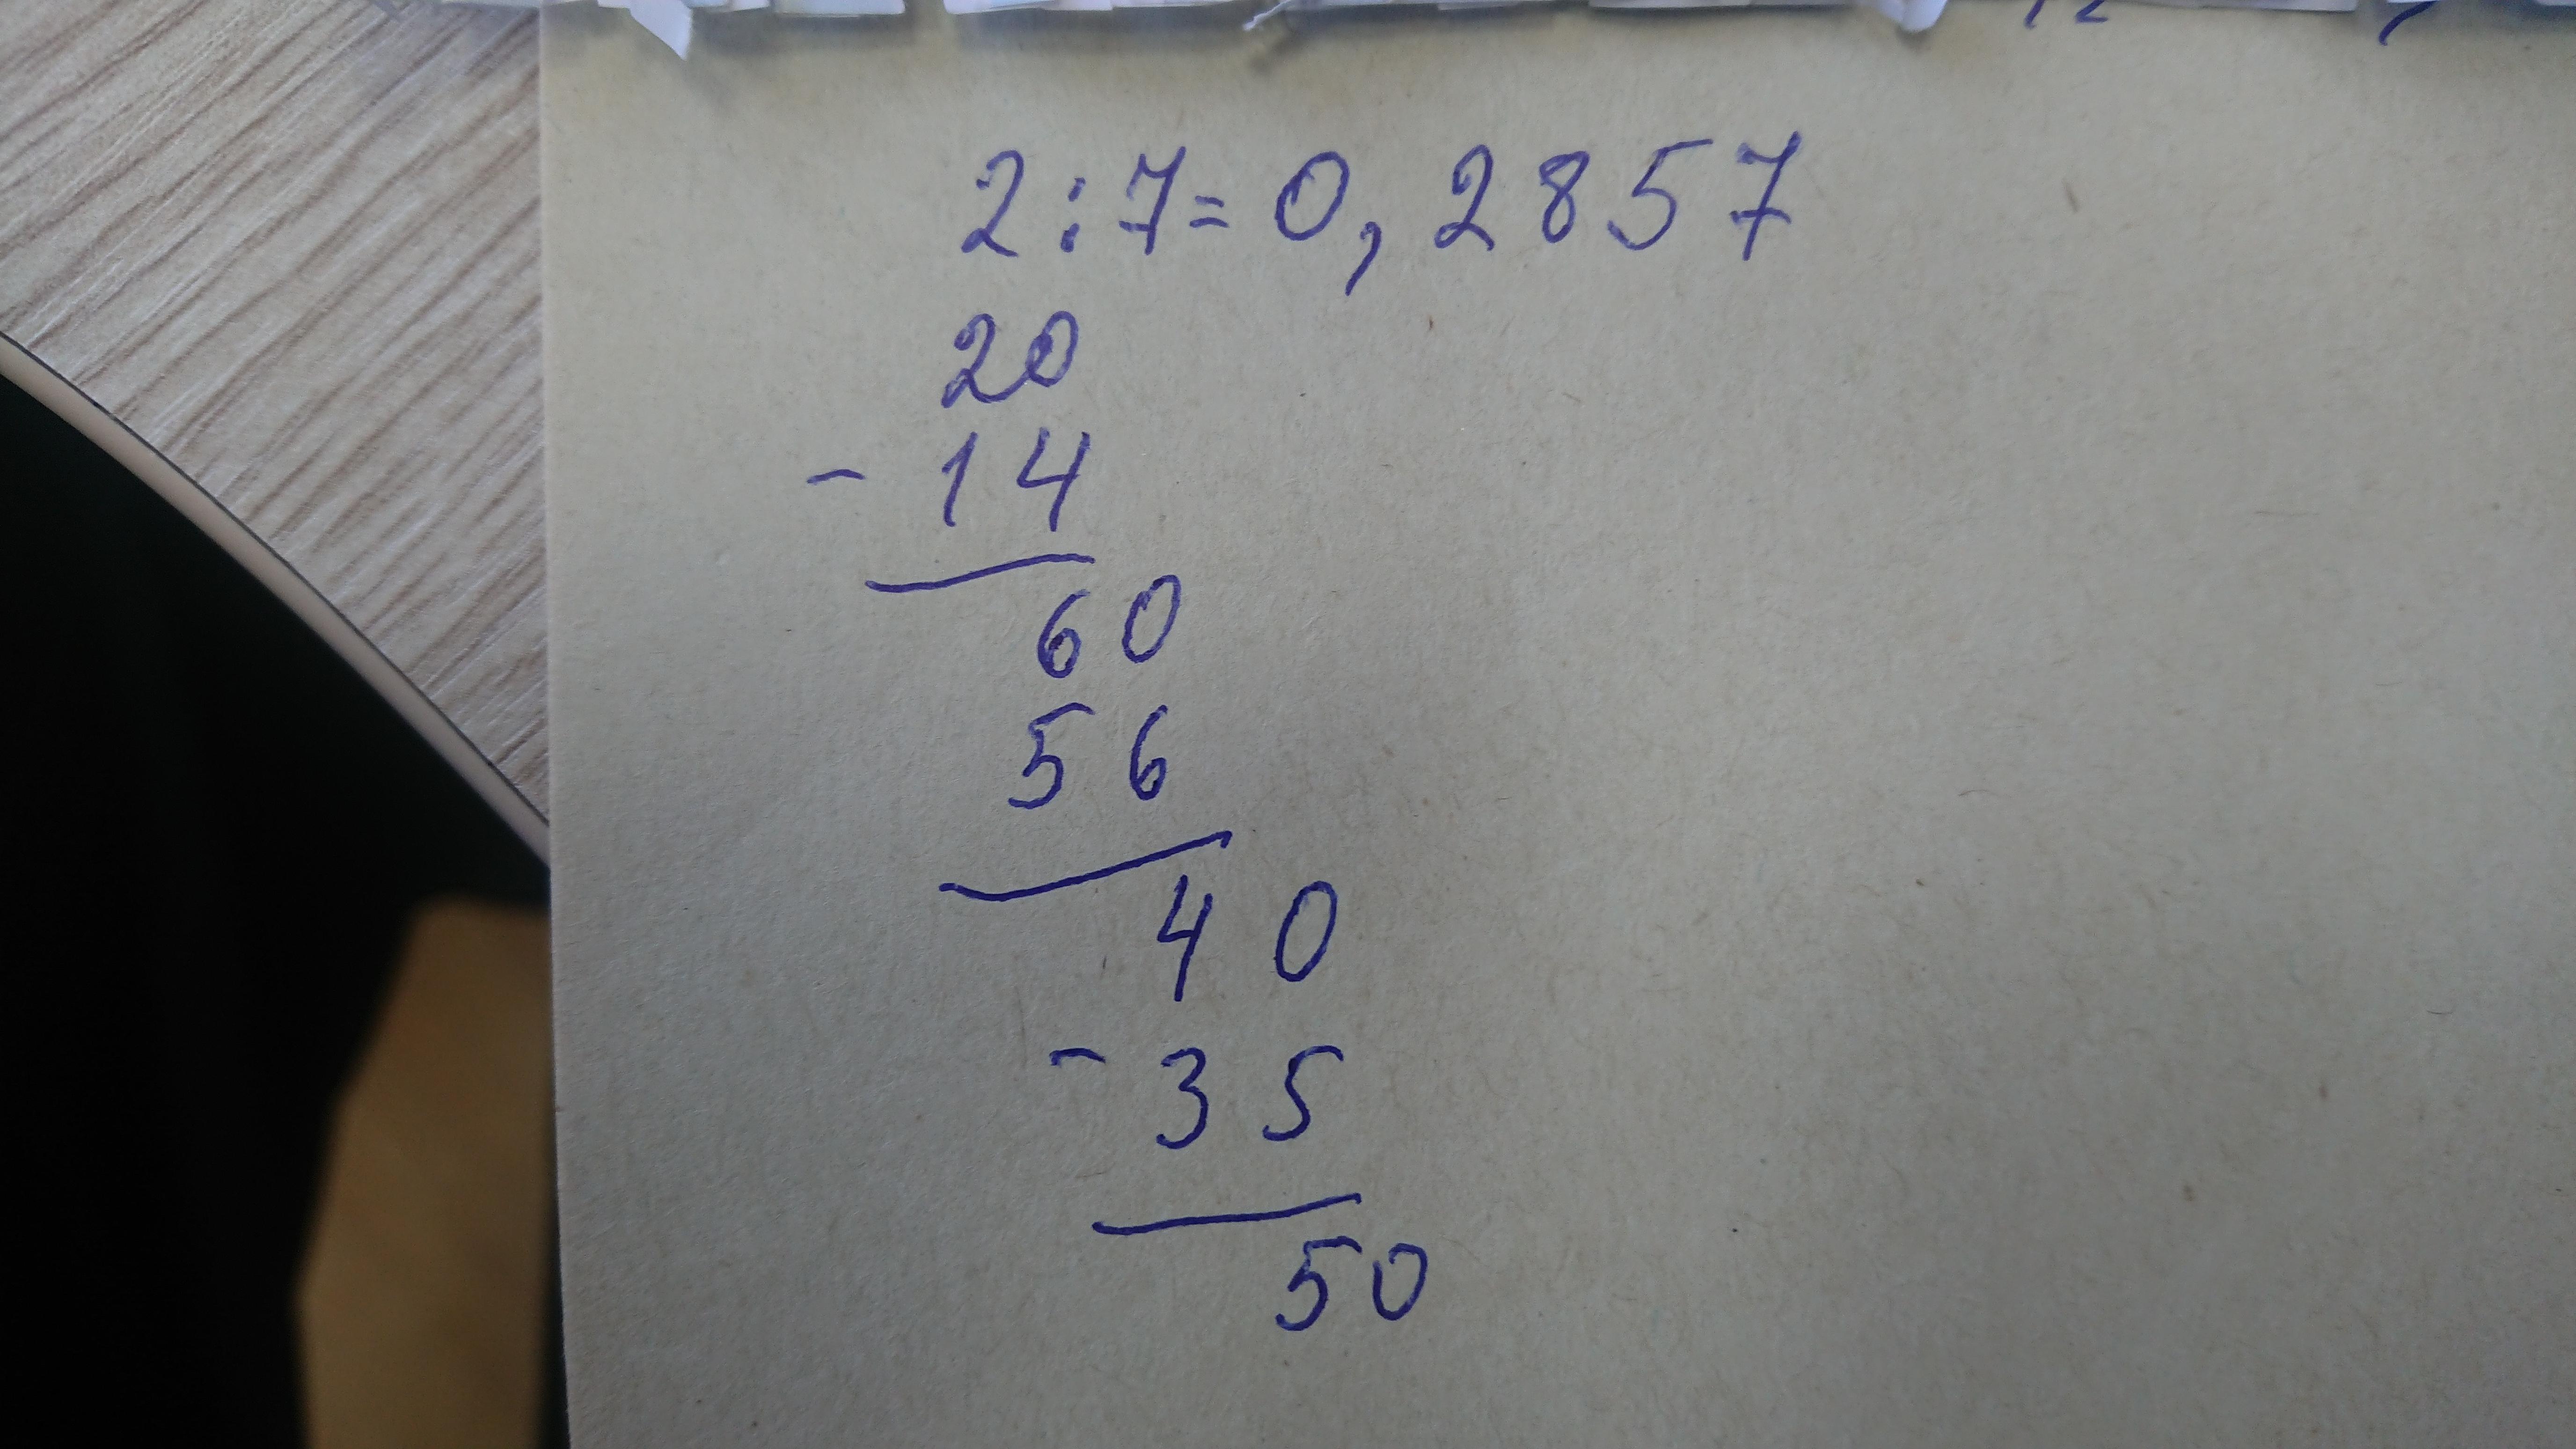 2:7=0,2857
20
-14
60
56
40
-35
50